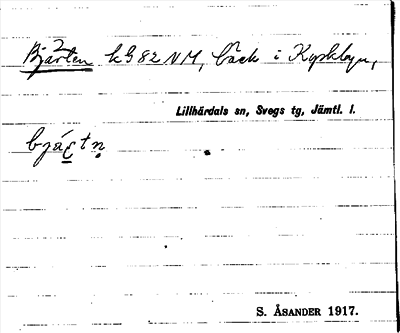 Bjärten kG 82 NM, bäck i Kyrkbyn,
Lillhärdals sn, Svegs tg, Jämtl. l.
bjártn
S. ÅSANDER 1917.